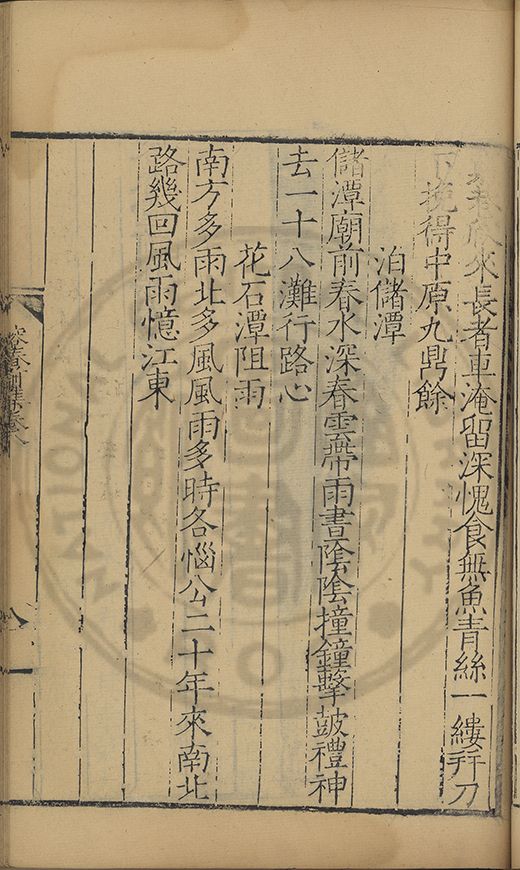 來長者車淹留深愧食無魚青絲一縷拜刀
下挽得中原九鼎餘
泊儲潭
儲潭廟前春水深春雲帶雨晝陰陰撞鐘擊鼓禮神
去一十八灘行路心
花石潭阻雨
南方多雨北多風風雨多時各惱公二十年來南北
路幾回風雨憶江東